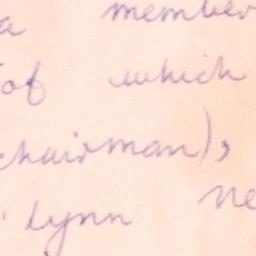 a member
of which
chairman),
Lynn ne